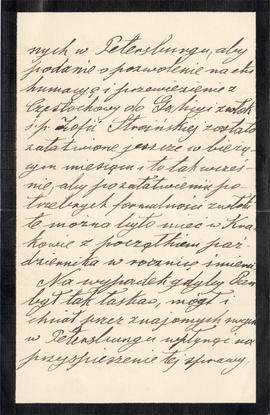 nych w Petersburgu, aby
podanie o pozwolenie na eks
humacyę i przewiezienie z
Częstochowy do Galicyi zwłok
ś. p. Zofii Stroińskiej zostało
załatwione jeszcze w bieżą-
cym miesiącu i to tak wcześ
nie, aby po załatwieniu po-
trzebnych formalności zwłoki
te można było mieć w Kra-
kowie z początkiem paź-
dziernika w rocznicę śmierci.
Na wypadek gdyby Pan
był tak łaskaw, mógł i
chciał przez znajomych swych
w Petersburgu wpłynąć na
przyspieszenie tej sprawy,